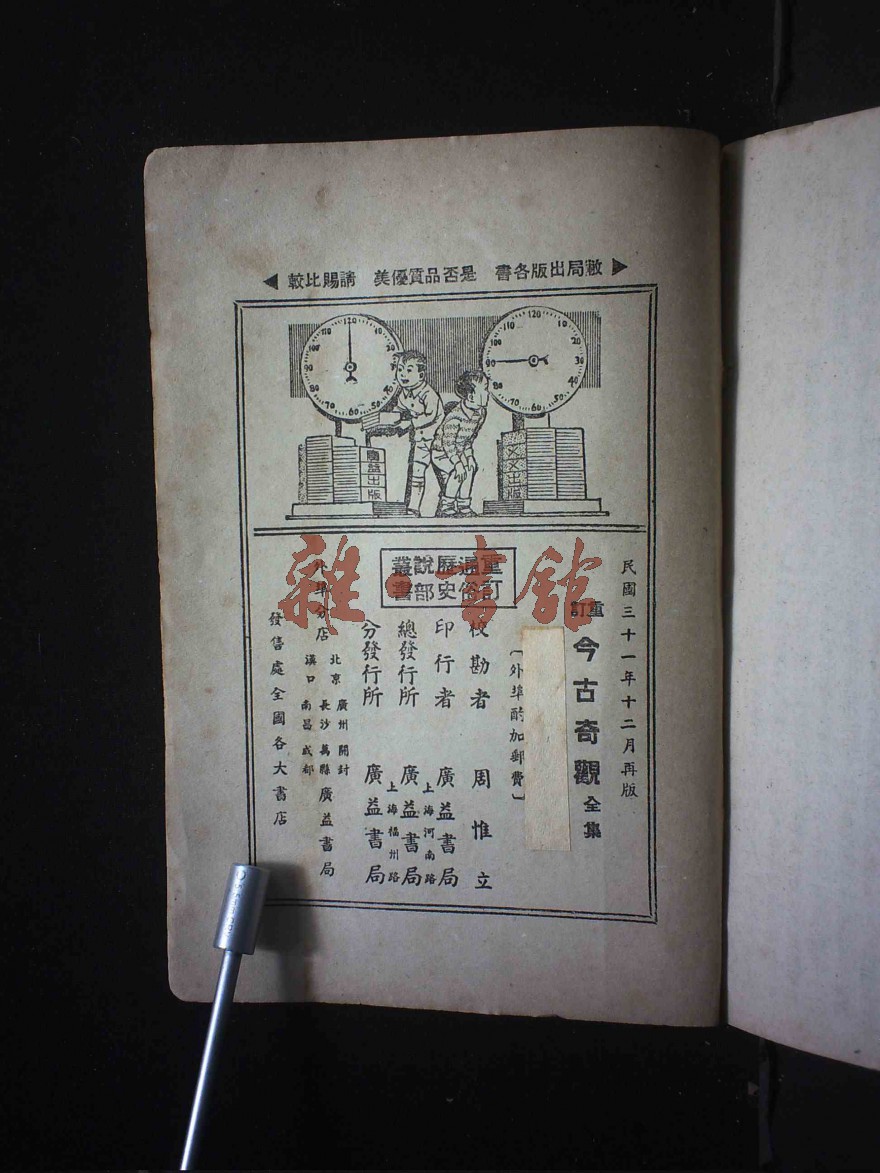 敝局出版各書 是否品質優美 請賜比較
120 10 20 30 40 50 60 70 80 90 100 110
120 10 20 30 40 50 60 70 80 90 100 110
廣益出版
乂乂出版
民國三十一年十二月再版
重訂 今古奇觀 全集
〔外埠酌加郵費〕
重訂通俗歷史說部叢書
校勘者 周惟立
印行者 上海河南路 廣益書局
總發行所 上海福州路 廣益書局
分發行所 廣益書局
外埠分店 北京 廣州 開封 漢口 長沙 萬縣 南昌 成都 廣益書局
發售處全國各大書店
雜·書館